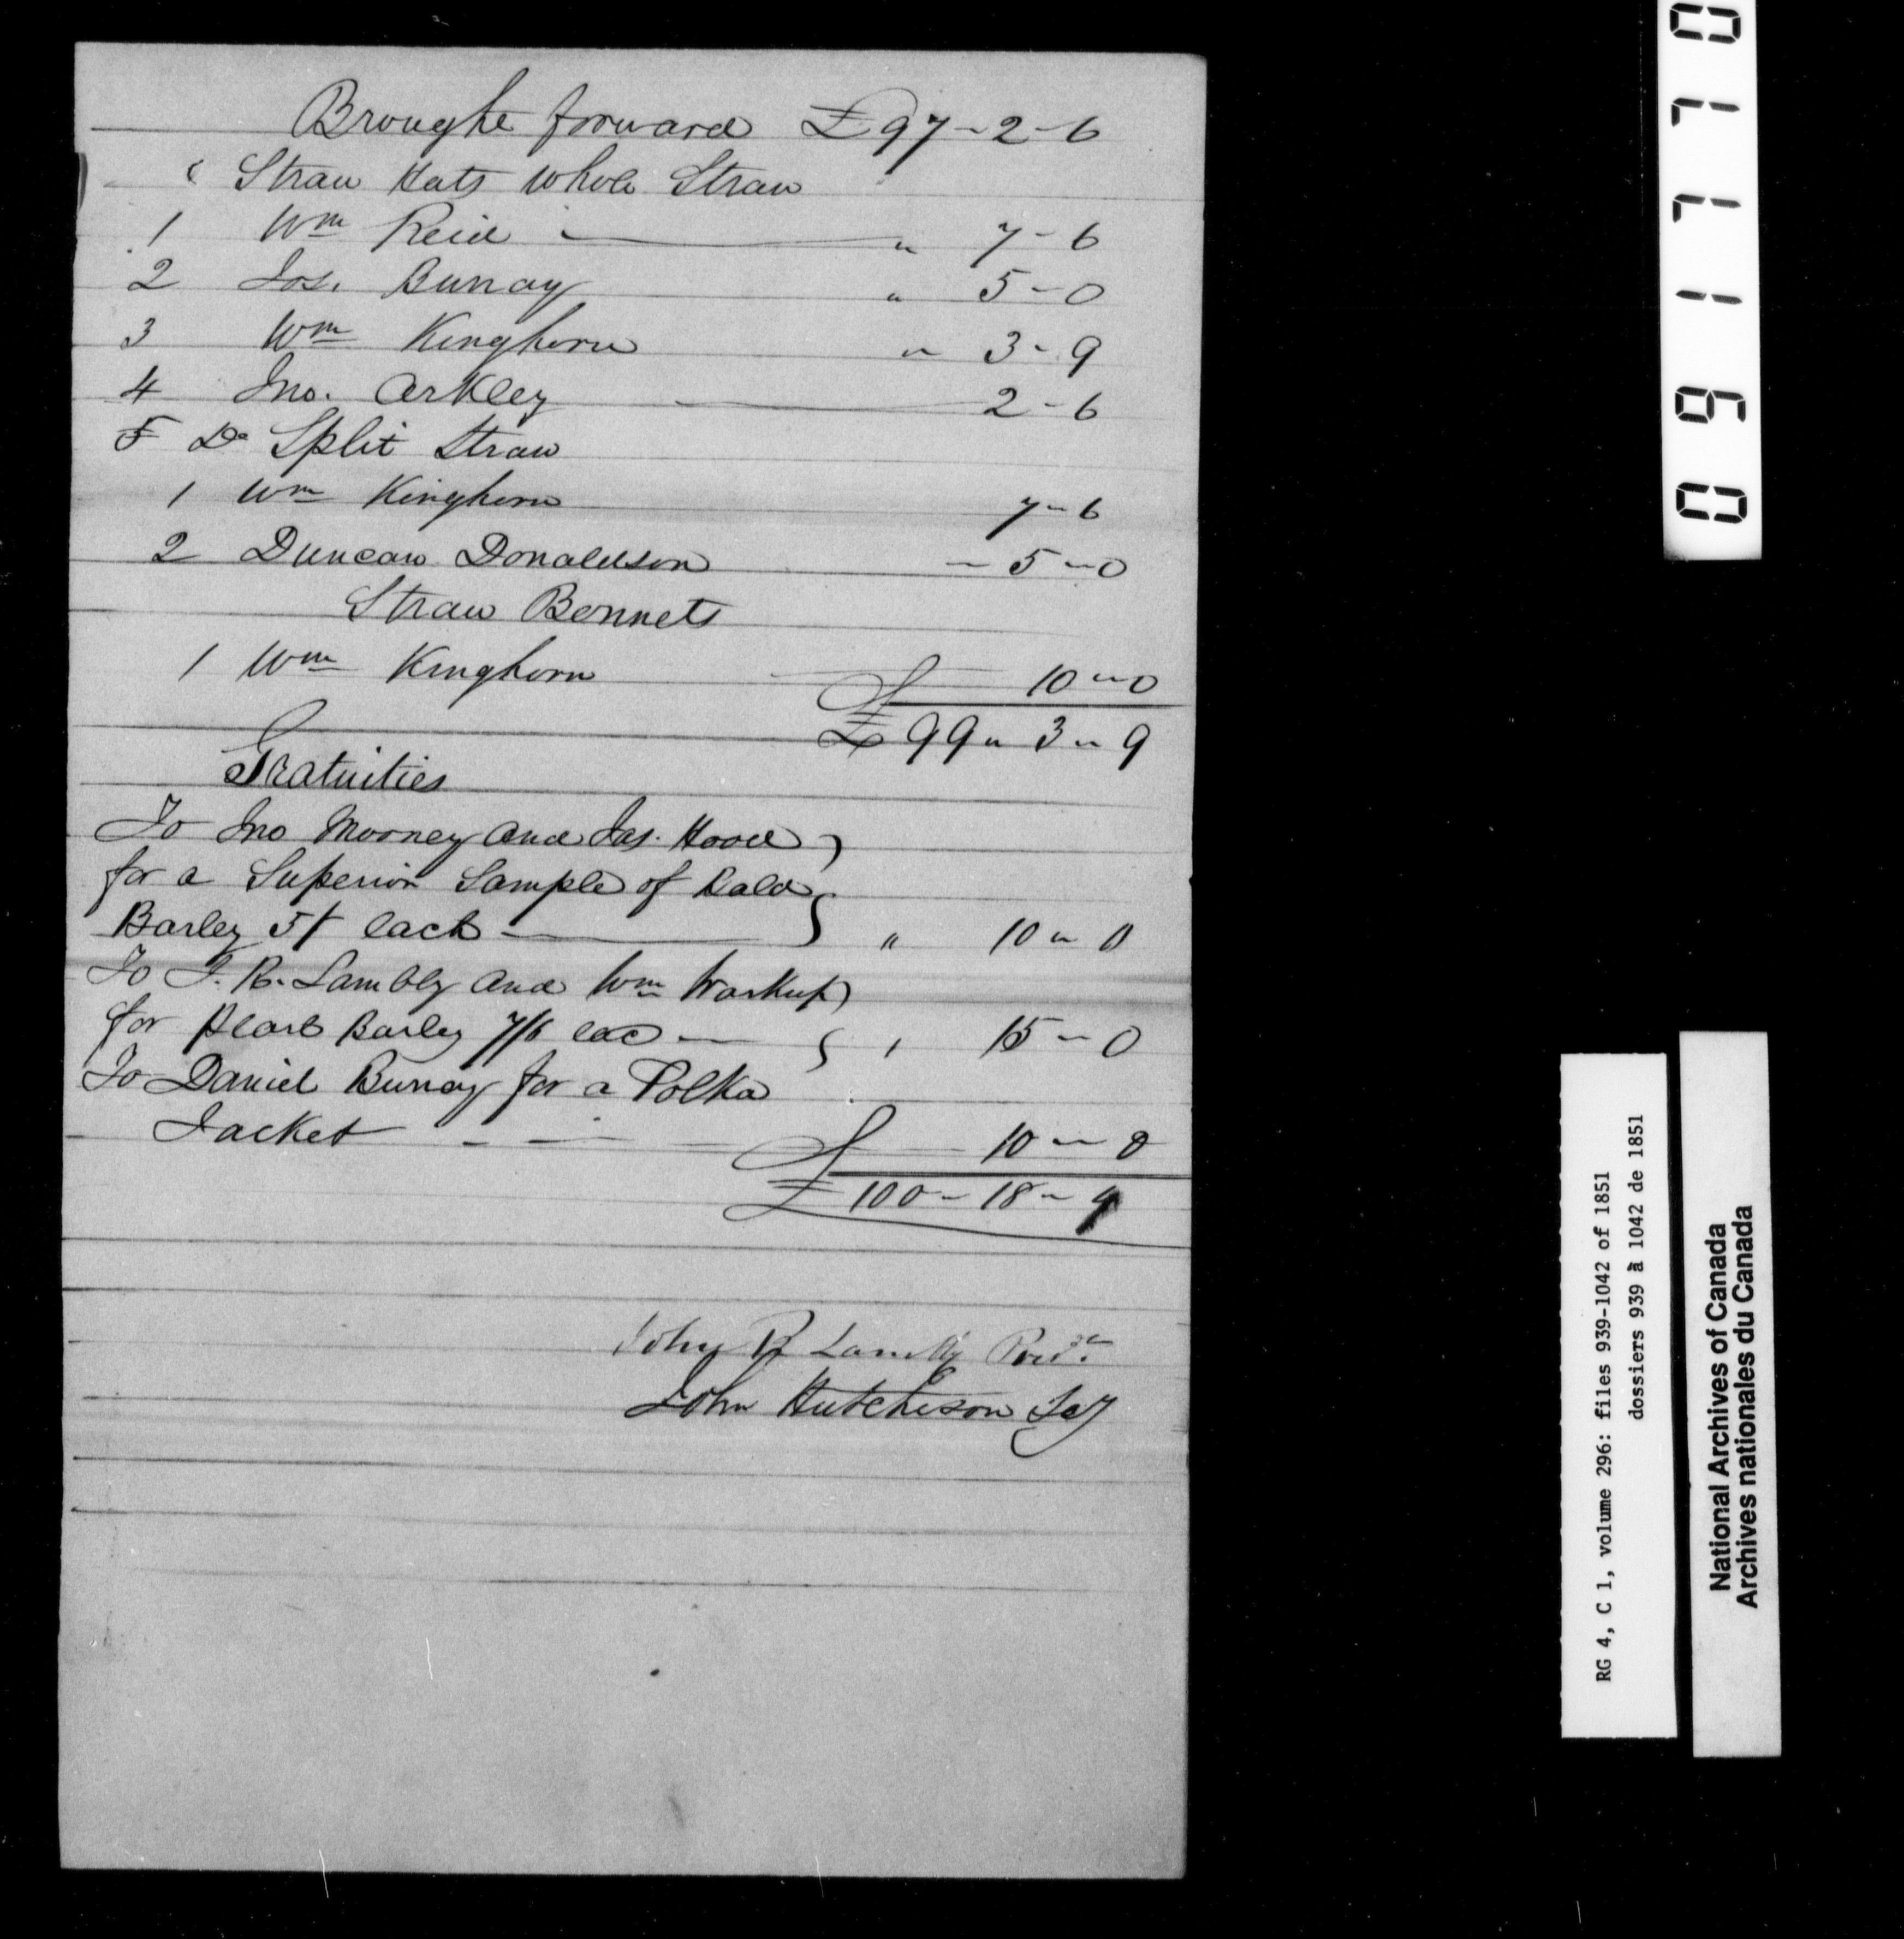 Brought forward £97-2-6
Straw Hats Whole Straw
1 Wm Reid " 7-6
2 Jos. Burray " 5-0
3 Wm Kinghorn " 3-9
4 Jno. Arkley 2-6
5 Do Split Straw
1 Wm Kinghorn 7-6
2 Duncan Donaldson 5-0
Straw Bonnets
1 Wm Kinghorn 10-0
£99-3-9
Gratuities
To Jno Mooney and Jas. Hood
for a Superior Sample of
Barley 5/ each " 10-0
To J. R. Lambly and Wm Warkup
for Pearl Barley 7/6 eac 15-0
To Daniel Burray for a Polka
Jacket 10-0
£100-18-9
John R Lambly Presdt
John Hutcheson Scy
0 9 1 7 7 0
RG 4, C 1, volume 296: files 939-1042 of 1851
dossiers 939 à 1042 de 1851
National Archives of Canada
Archives nationales du Canada